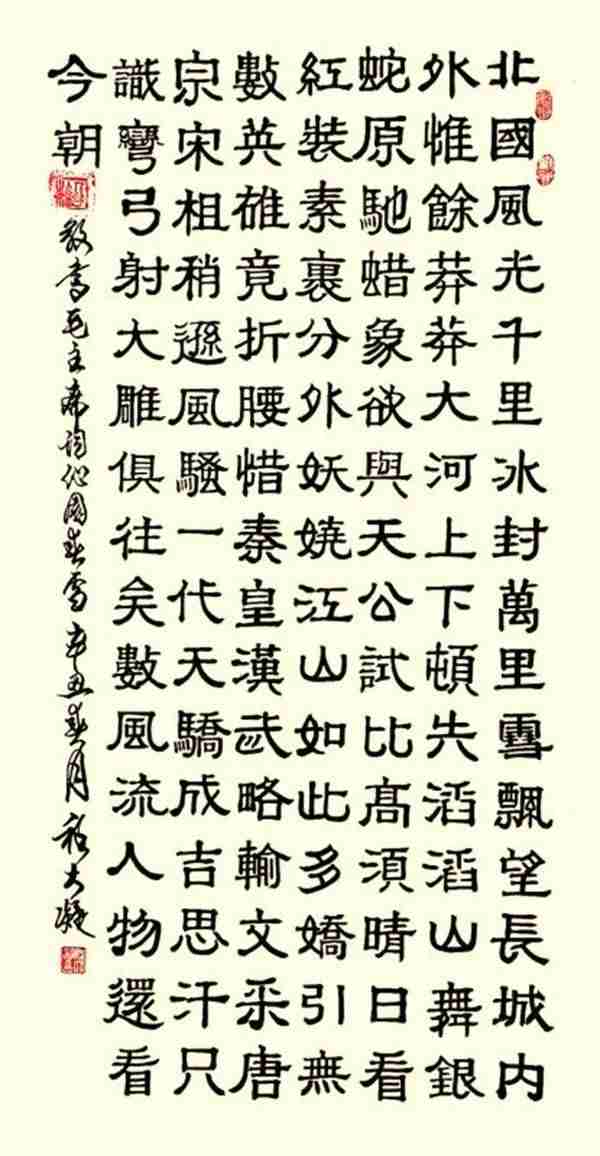 北國風光千里冰封萬里雪飄望長城内
外惟餘莽莽大河上下頓失滔滔山舞銀
蛇原馳蜡象欲與天公試比高須晴日看
紅裝素裹分外妖嬈江山如此多嬌引無
數英雄竟折腰惜秦皇漢武略輸文采唐
宗宋祖稍遜風騷一代天驕成吉思汗只
識彎弓射大雕俱往矣數風流人物還看
今朝
敬書毛主席詞沁園春雪辛丑春月